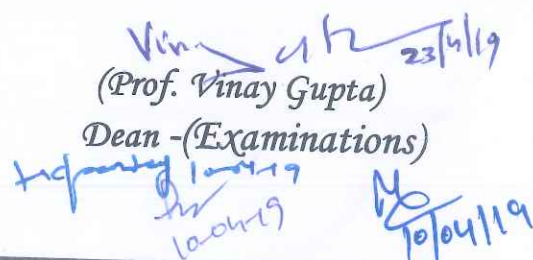 23/4/19
(Prof. Vinay Gupta)
Dean -(Examinations)
10-04-19
10-04-19
10/04/19